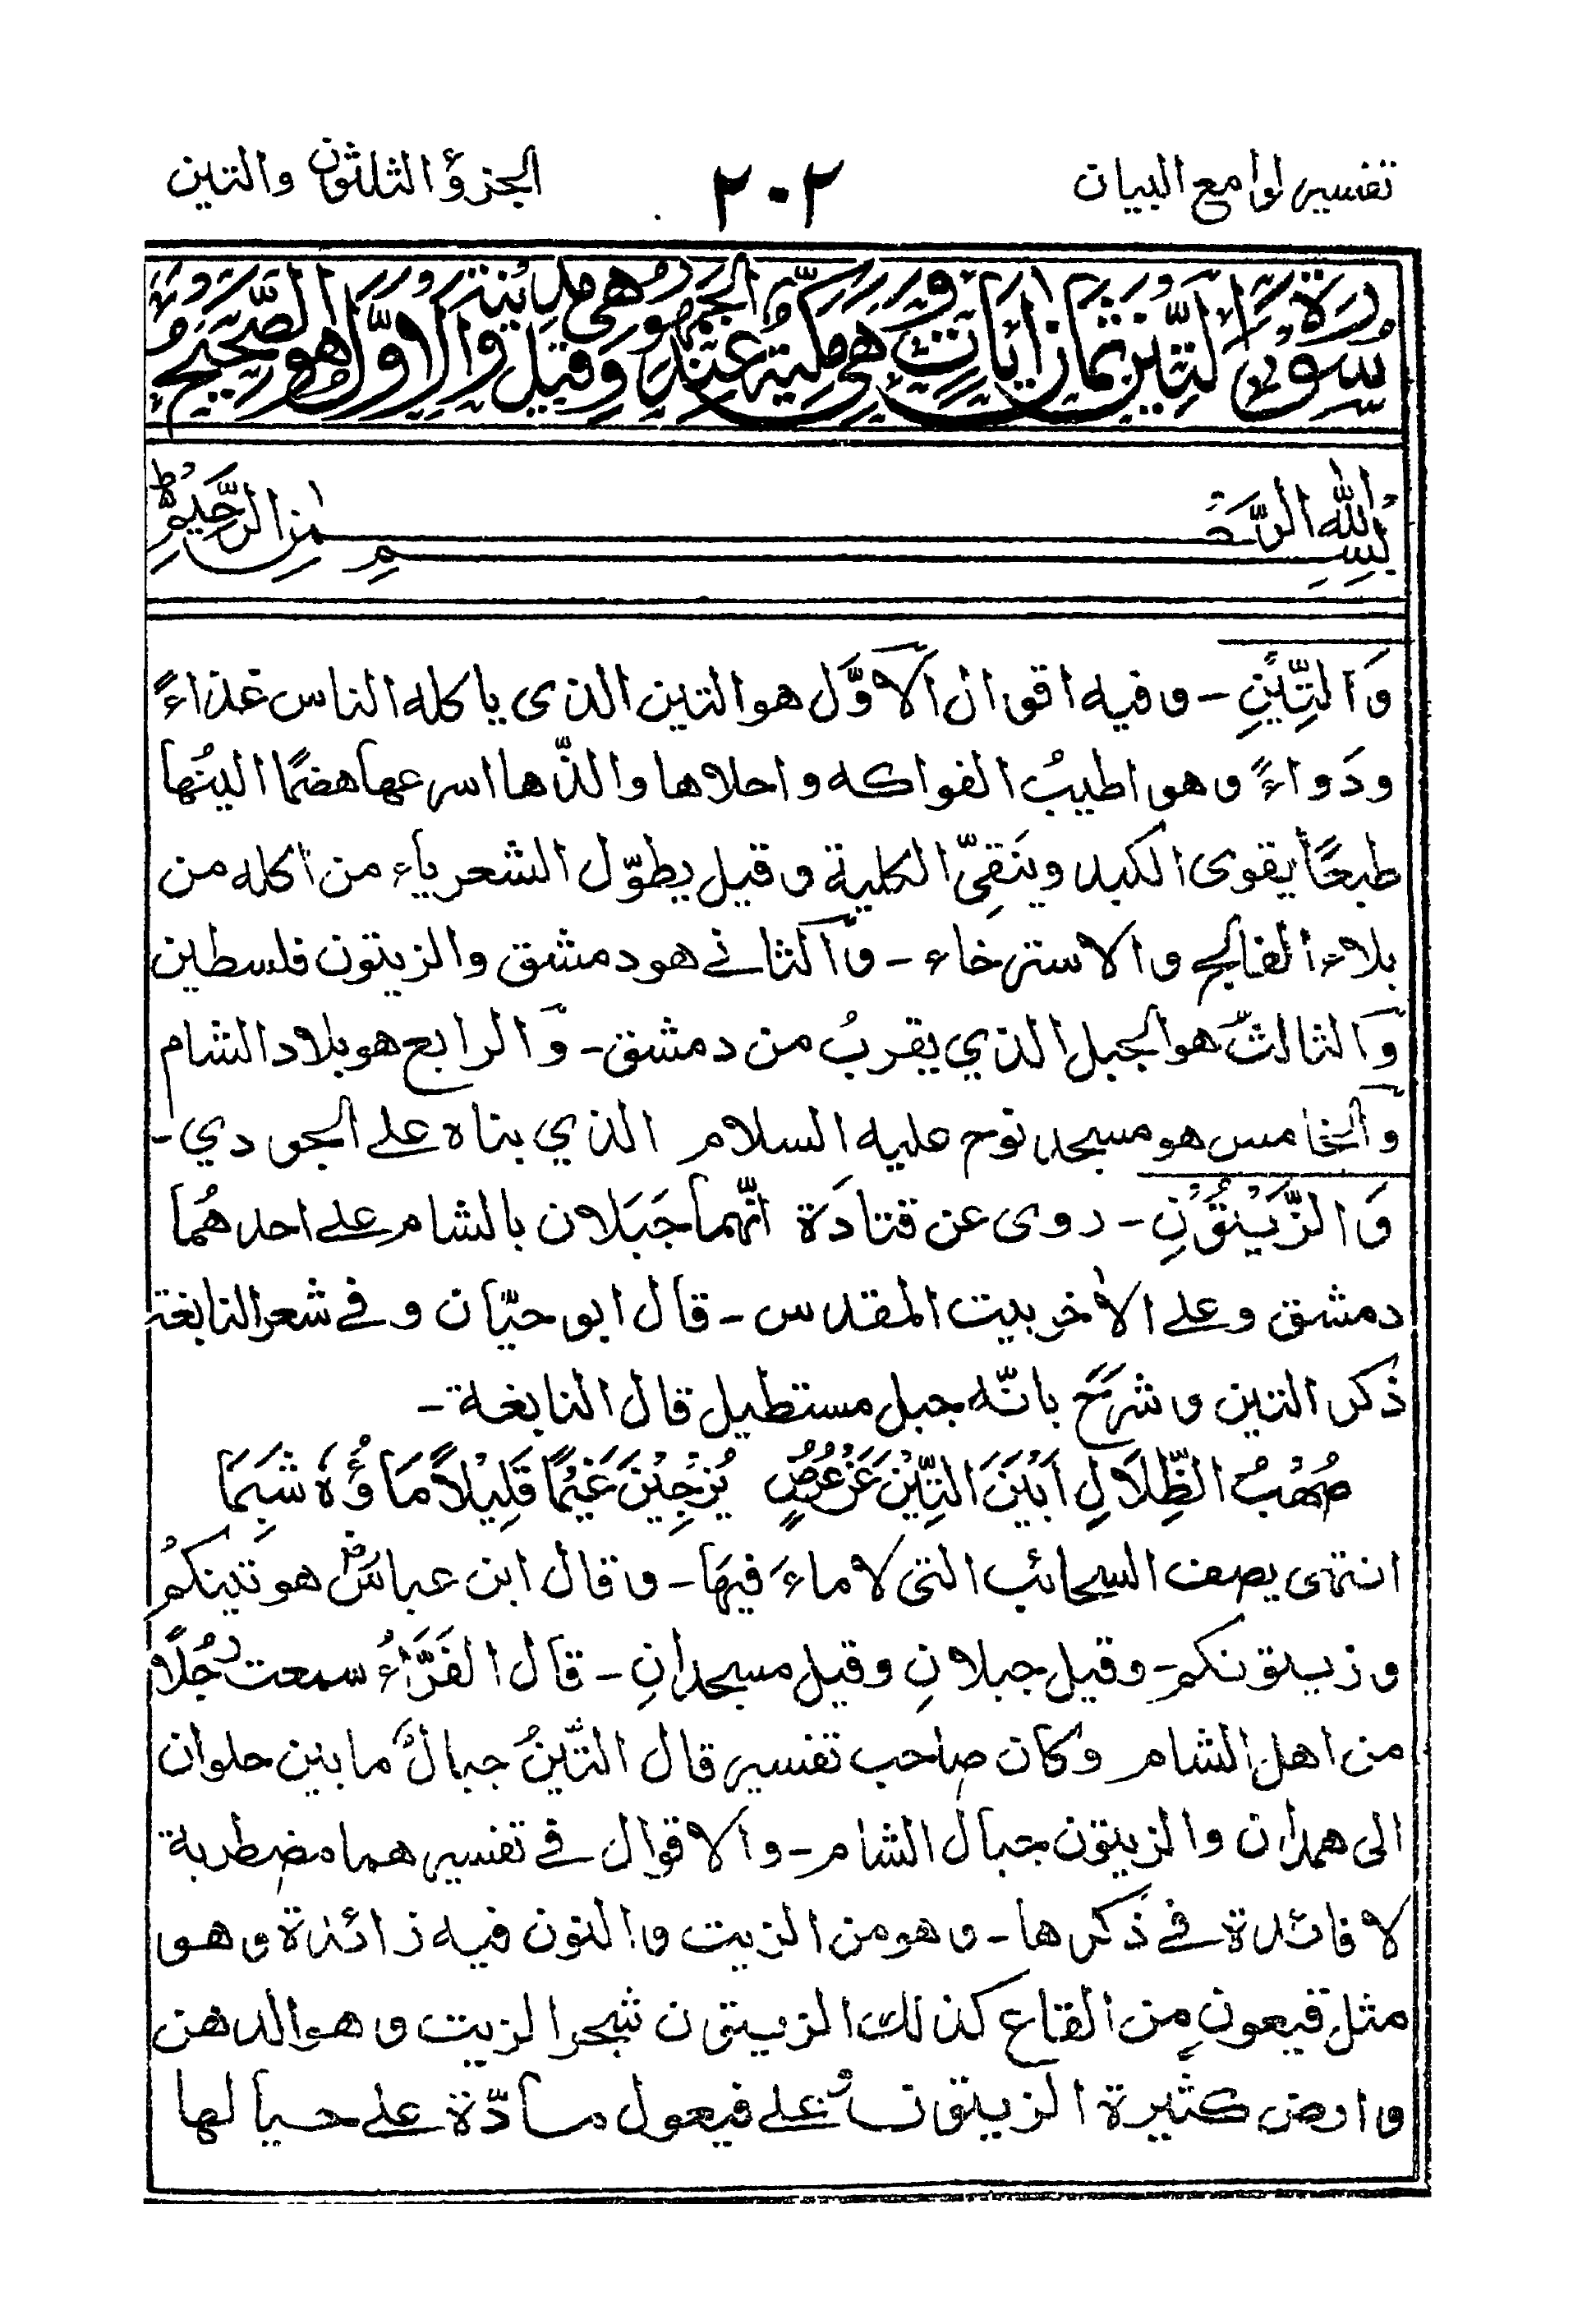 تفسير لوامع البيان
٢٠٢
الجزؤ الثلثون والتين
سورة التين ثمان ايات وهي مكية عند الجمهور وقيل هي مدينة والاول هو الصحيح
بسم الله الرحمن الرحيم
وَالتِّيْنِ - وفيه اقوال الاوّل هو التين الذى ياكله الناس غذاءً
ودَواءً وهو اطيبُ الفواكه واحلاها والذّها اسرعها هضمًا الينُها
طبعًا يقوى الكبد وينَقِىّ الكلية وقيل يطوّل الشعر ياء من اكله من
بلاء الفالج والاسترخاء - والثانے هو دمشق والزيتون فلسطين
والثالث هو الجبل الذي يقربُ من دمشق - والرابع هو بلاد الشام
والخامس هو مسجد نوح عليه السلام الذي بناه علے الجودي -
وَالزَّيْتُوْنِ - روى عن قتادَة انّهما جَبَلان بالشام علے احدهُما
دمشق وعلے الاٰخر بيت المقدس - قال ابو حيّان وفے شعر النابغة
ذكر التين وشرَحَ بانّه جبل مستطيل قال النابغة -
صُهْبُ الظِّلَالِ اَبَيْنَ التِّيْنَ عَنْ عُرُضٍ يُزْجِيْنَ غَيْمًا قَلِيْلًا مَاؤُهٗ شَبِمَا
انتهى يصف السحائب التى لا ماءَ فيهَا - وقال ابن عباسؓ هو تينكمُ
وزيتونكم - وقيل جبلانِ وقيل مسجدانِ - قال الفَرَّاءُ سمعت رجُلًا
من اهل الشام وكان صاحب تفسير قال التّينُ جبالٌ ما بين حلوان
الى همدان والزيتون جبال الشام - والاقوال فے تفسيرهما مضطربة
لا فائدة فے ذكرها - وهو من الزيت والنون فيه زائدة وهو
مثل قيعون من القاع كذلك الزيتون شجر الزيت وهو الدهن
وارض كثيرة الزيتون علے فيعول مادّة علے حيالها